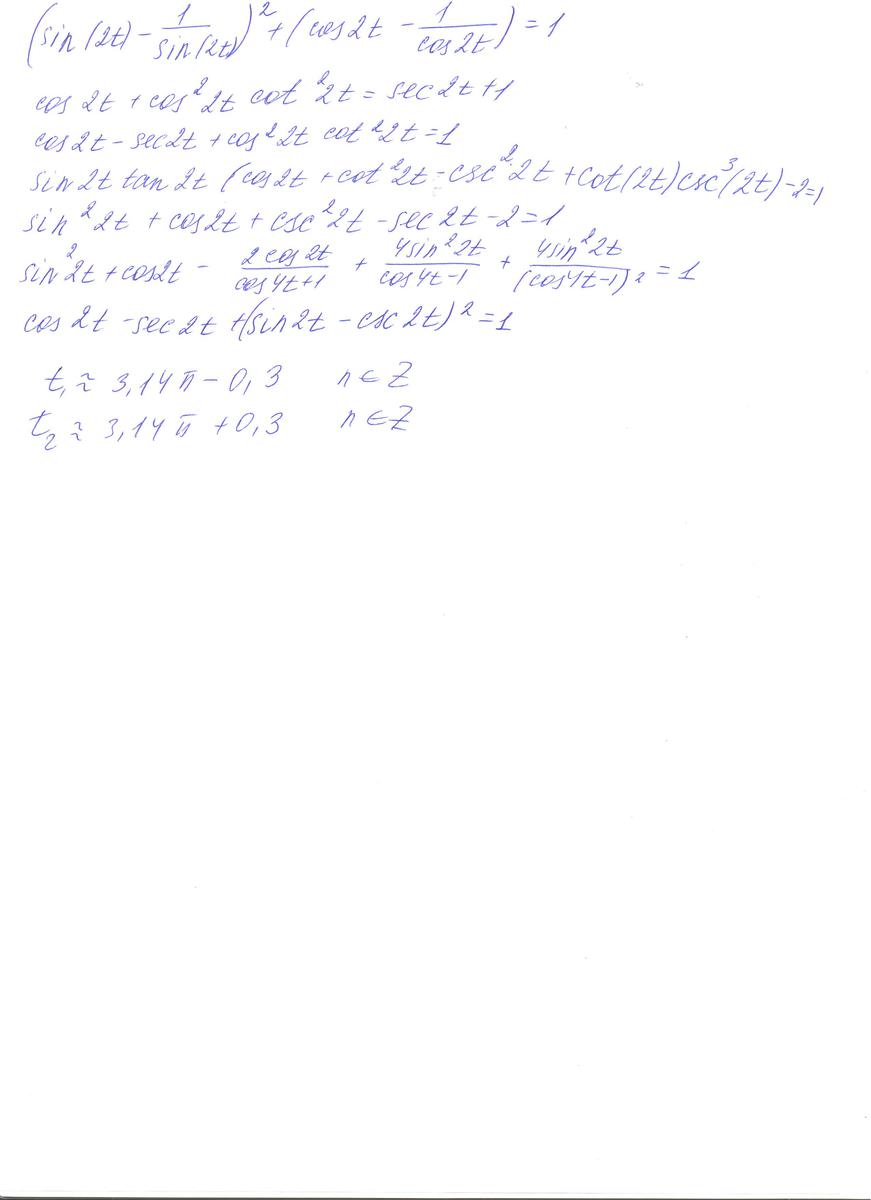 (sin(2t) - 1/sin(2t))² + (cos2t - 1/cos2t) = 1
cos 2t + cos²2t cot²2t = sec2t+1
cos2t - sec2t + cos²2t cot²2t = 1
sin2t tan2t (cos2t + cot²2t - csc²2t + cot(2t)csc³(2t) - 2=1
sin²2t + cos2t + csc²2t - sec2t - 2 = 1
sin²2t + cos2t - 2cos2t/cos4t+1 + 4sin²2t/cos4t-1 + 4sin²2t/(cos4t-1)² = 1
cos 2t - sec2t + (sin2t - csc2t)² = 1
t₁ ≈ 3,14π - 0,3 n∈Z
t₂ ≈ 3,14π + 0,3 n∈Z